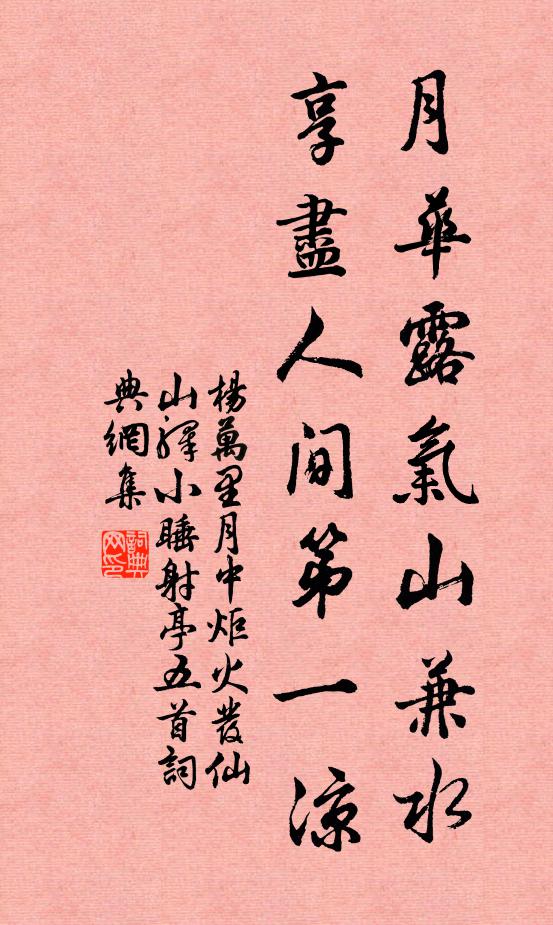 月華露氣山兼水
享盡人間第一涼
楊萬里月中炬火發仙
山驛小睡射亭五首詞
典網集
詞典
网印